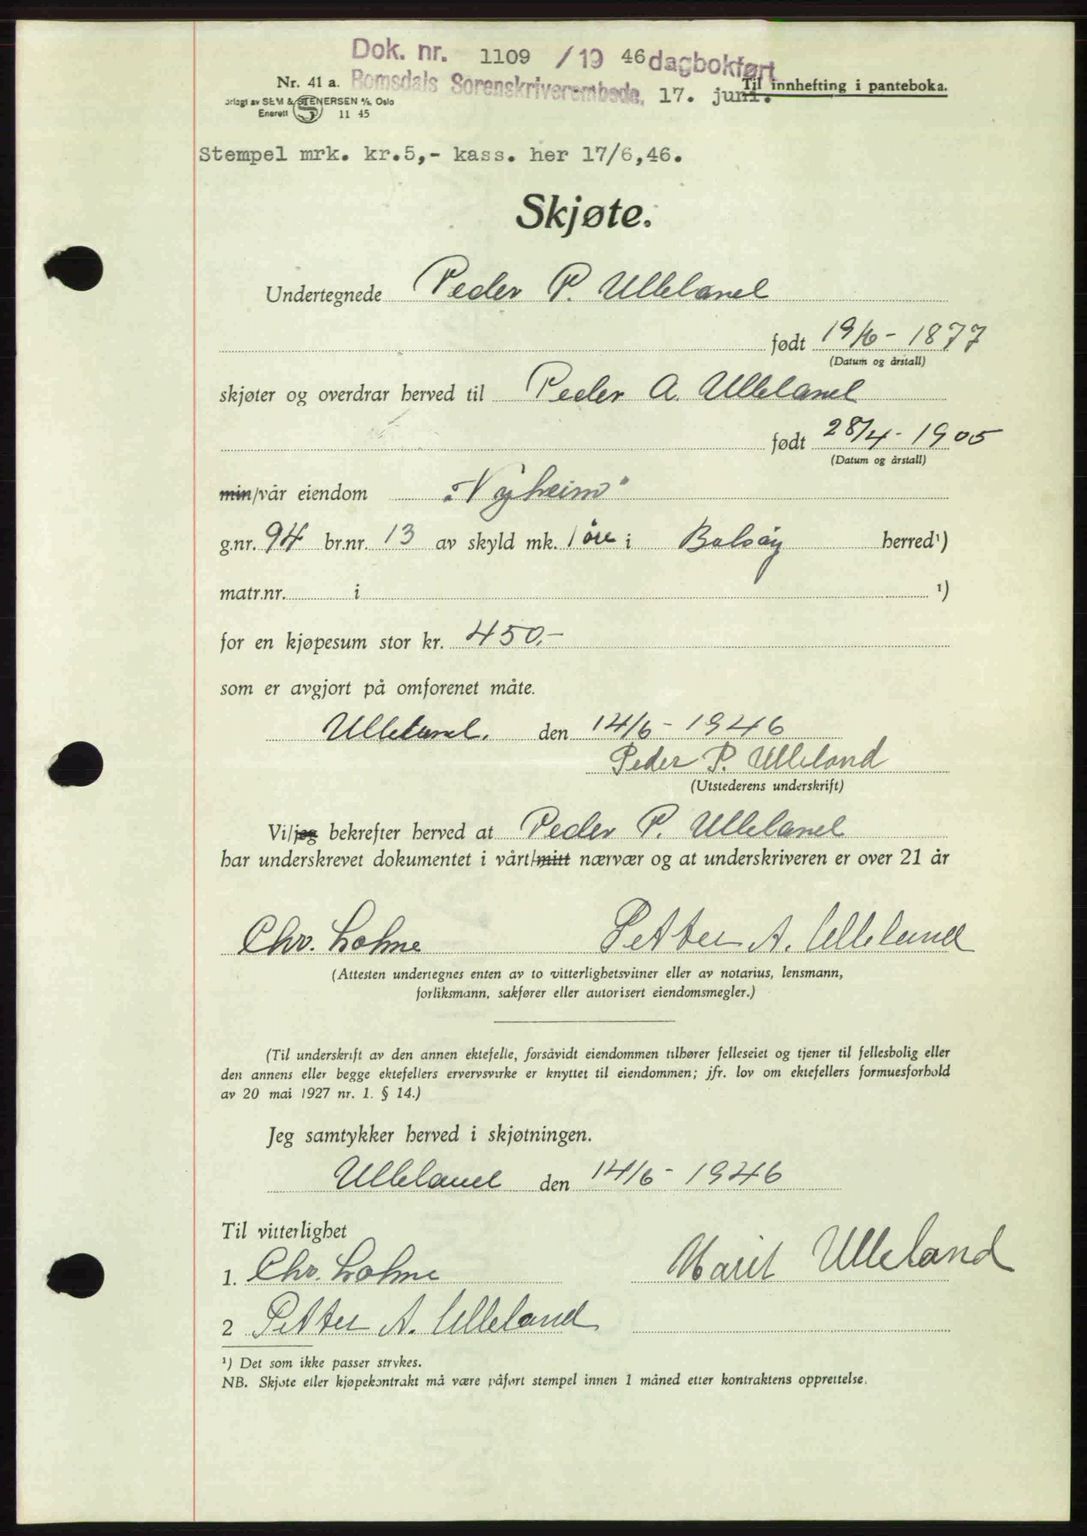 Dok. nr. 1109 /19 46 dagbokført
Nr. 41 a. Romsdals Sorenskriverembede, 17. juni. Til innhefting i panteboka.
Forlagt av SEM & STENERSEN A/S, Oslo
Enerett S 11 45
Stempel mrk. kr.5,- kass. her 17/6,46.
Skjøte.
Undertegnede Peder P. Ulleland
født 19/6 - 1877
(Datum og årstall)
skjøter og overdrar herved til Peder A. Ulleland
født 28/4 - 1905
(Datum og årstall)
min/vår eiendom "Nyheim"
g.nr. 94 br.nr. 13 av skyld mk. 1 øre i Bolsøy herred¹)
matr.nr. i ¹)
for en kjøpesum stor kr. 450,-
som er avgjort på omforenet måte.
Ulleland. den 14/6 - 1946
Peder P. Ulleland
(Utstederens underskrift)
Vi/jeg bekrefter herved at Peder P. Ulleland
har underskrevet dokumentet i vårt/mitt nærvær og at underskriveren er over 21 år
Chr. Lohne Petter A. Ulleland
(Attesten undertegnes enten av to vitterlighetsvitner eller av notarius, lensmann,
forliksmann, sakfører eller autorisert eiendomsmegler.)
(Til underskrift av den annen ektefelle, forsåvidt eiendommen tilhører felleseiet og tjener til fellesbolig eller
den annens eller begge ektefellers ervervsvirke er knyttet til eiendommen; jfr. lov om ektefellers formuesforhold
av 20 mai 1927 nr. 1. § 14.)
Jeg samtykker herved i skjøtningen.
Ulleland den 14/6 - 1946
Til vitterlighet
1. Chr. Lohne Marit Ulleland
2 Petter A. Ulleland
¹) Det som ikke passer strykes.
NB. Skjøte eller kjøpekontrakt må være påført stempel innen 1 måned etter kontraktens opprettelse.